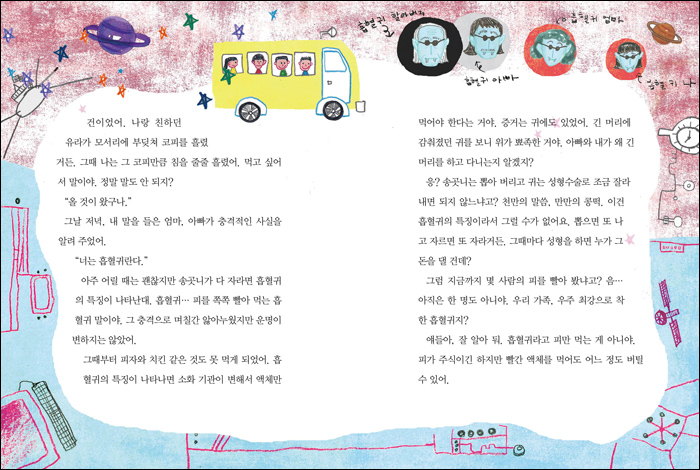 흡혈귀 할아버지
흡혈귀 엄마
흡혈귀 아빠
흡혈귀 나
건이었어. 나랑 친하던
유라가 모서리에 부딪쳐 코피를 흘렸
거든. 그때 나는 그 코피만큼 침을 줄줄 흘렸어. 먹고 싶어
서 말이야. 정말 말도 안 되지?
“올 것이 왔구나.”
그날 저녁, 내 말을 들은 엄마, 아빠가 충격적인 사실을
알려 주었어.
“너는 흡혈귀란다.”
아주 어릴 때는 괜찮지만 송곳니가 다 자라면 흡혈귀
의 특징이 나타난대. 흡혈귀… 피를 쪽쪽 빨아 먹는 흡
혈귀 말이야. 그 충격으로 며칠간 앓아누웠지만 운명이
변하지는 않았어.
그때부터 피자와 치킨 같은 것도 못 먹게 되었어. 흡
혈귀의 특징이 나타나면 소화 기관이 변해서 액체만
먹어야 한다는 거야. 증거는 귀에도 있었어. 긴 머리에
감춰졌던 귀를 보니 위가 뾰족한 거야. 아빠와 내가 왜 긴
머리를 하고 다니는지 알겠지?
응? 송곳니는 뽑아 버리고 귀는 성형수술로 조금 잘라
내면 되지 않느냐고? 천만의 말씀, 만만의 콩떡. 이건
흡혈귀의 특징이라서 그럴 수가 없어요. 뽑으면 또 나
고 자르면 또 자라거든. 그때마다 성형을 하면 누가 그
돈을 댈 건데?
그럼 지금까지 몇 사람의 피를 빨아 봤냐고? 음…
아직은 한 명도 아니야. 우리 가족, 우주 최강으로 착
한 흡혈귀지?
얘들아, 잘 알아 둬. 흡혈귀라고 피만 먹는 게 아니야.
피가 주식이긴 하지만 빨간 액체를 먹어도 어느 정도 버틸
수 있어.